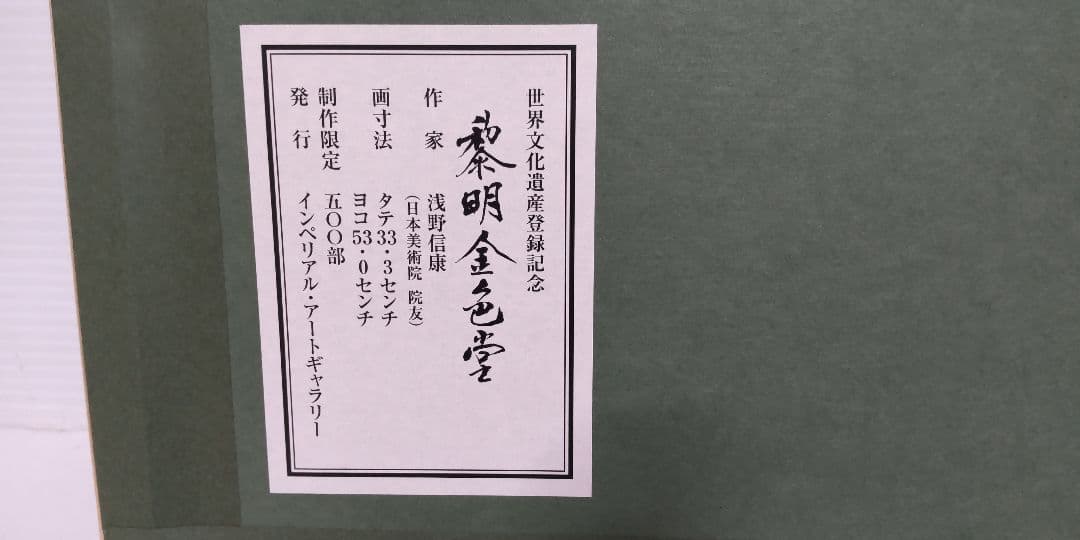 世界文化遺産登録記念
黎明金色堂
作家 浅野信康
（日本美術院 院友）
画寸法 タテ33・3センチ
ヨコ53・0センチ
制作限定 五〇〇部
発行 インペリアル・アートギャラリー